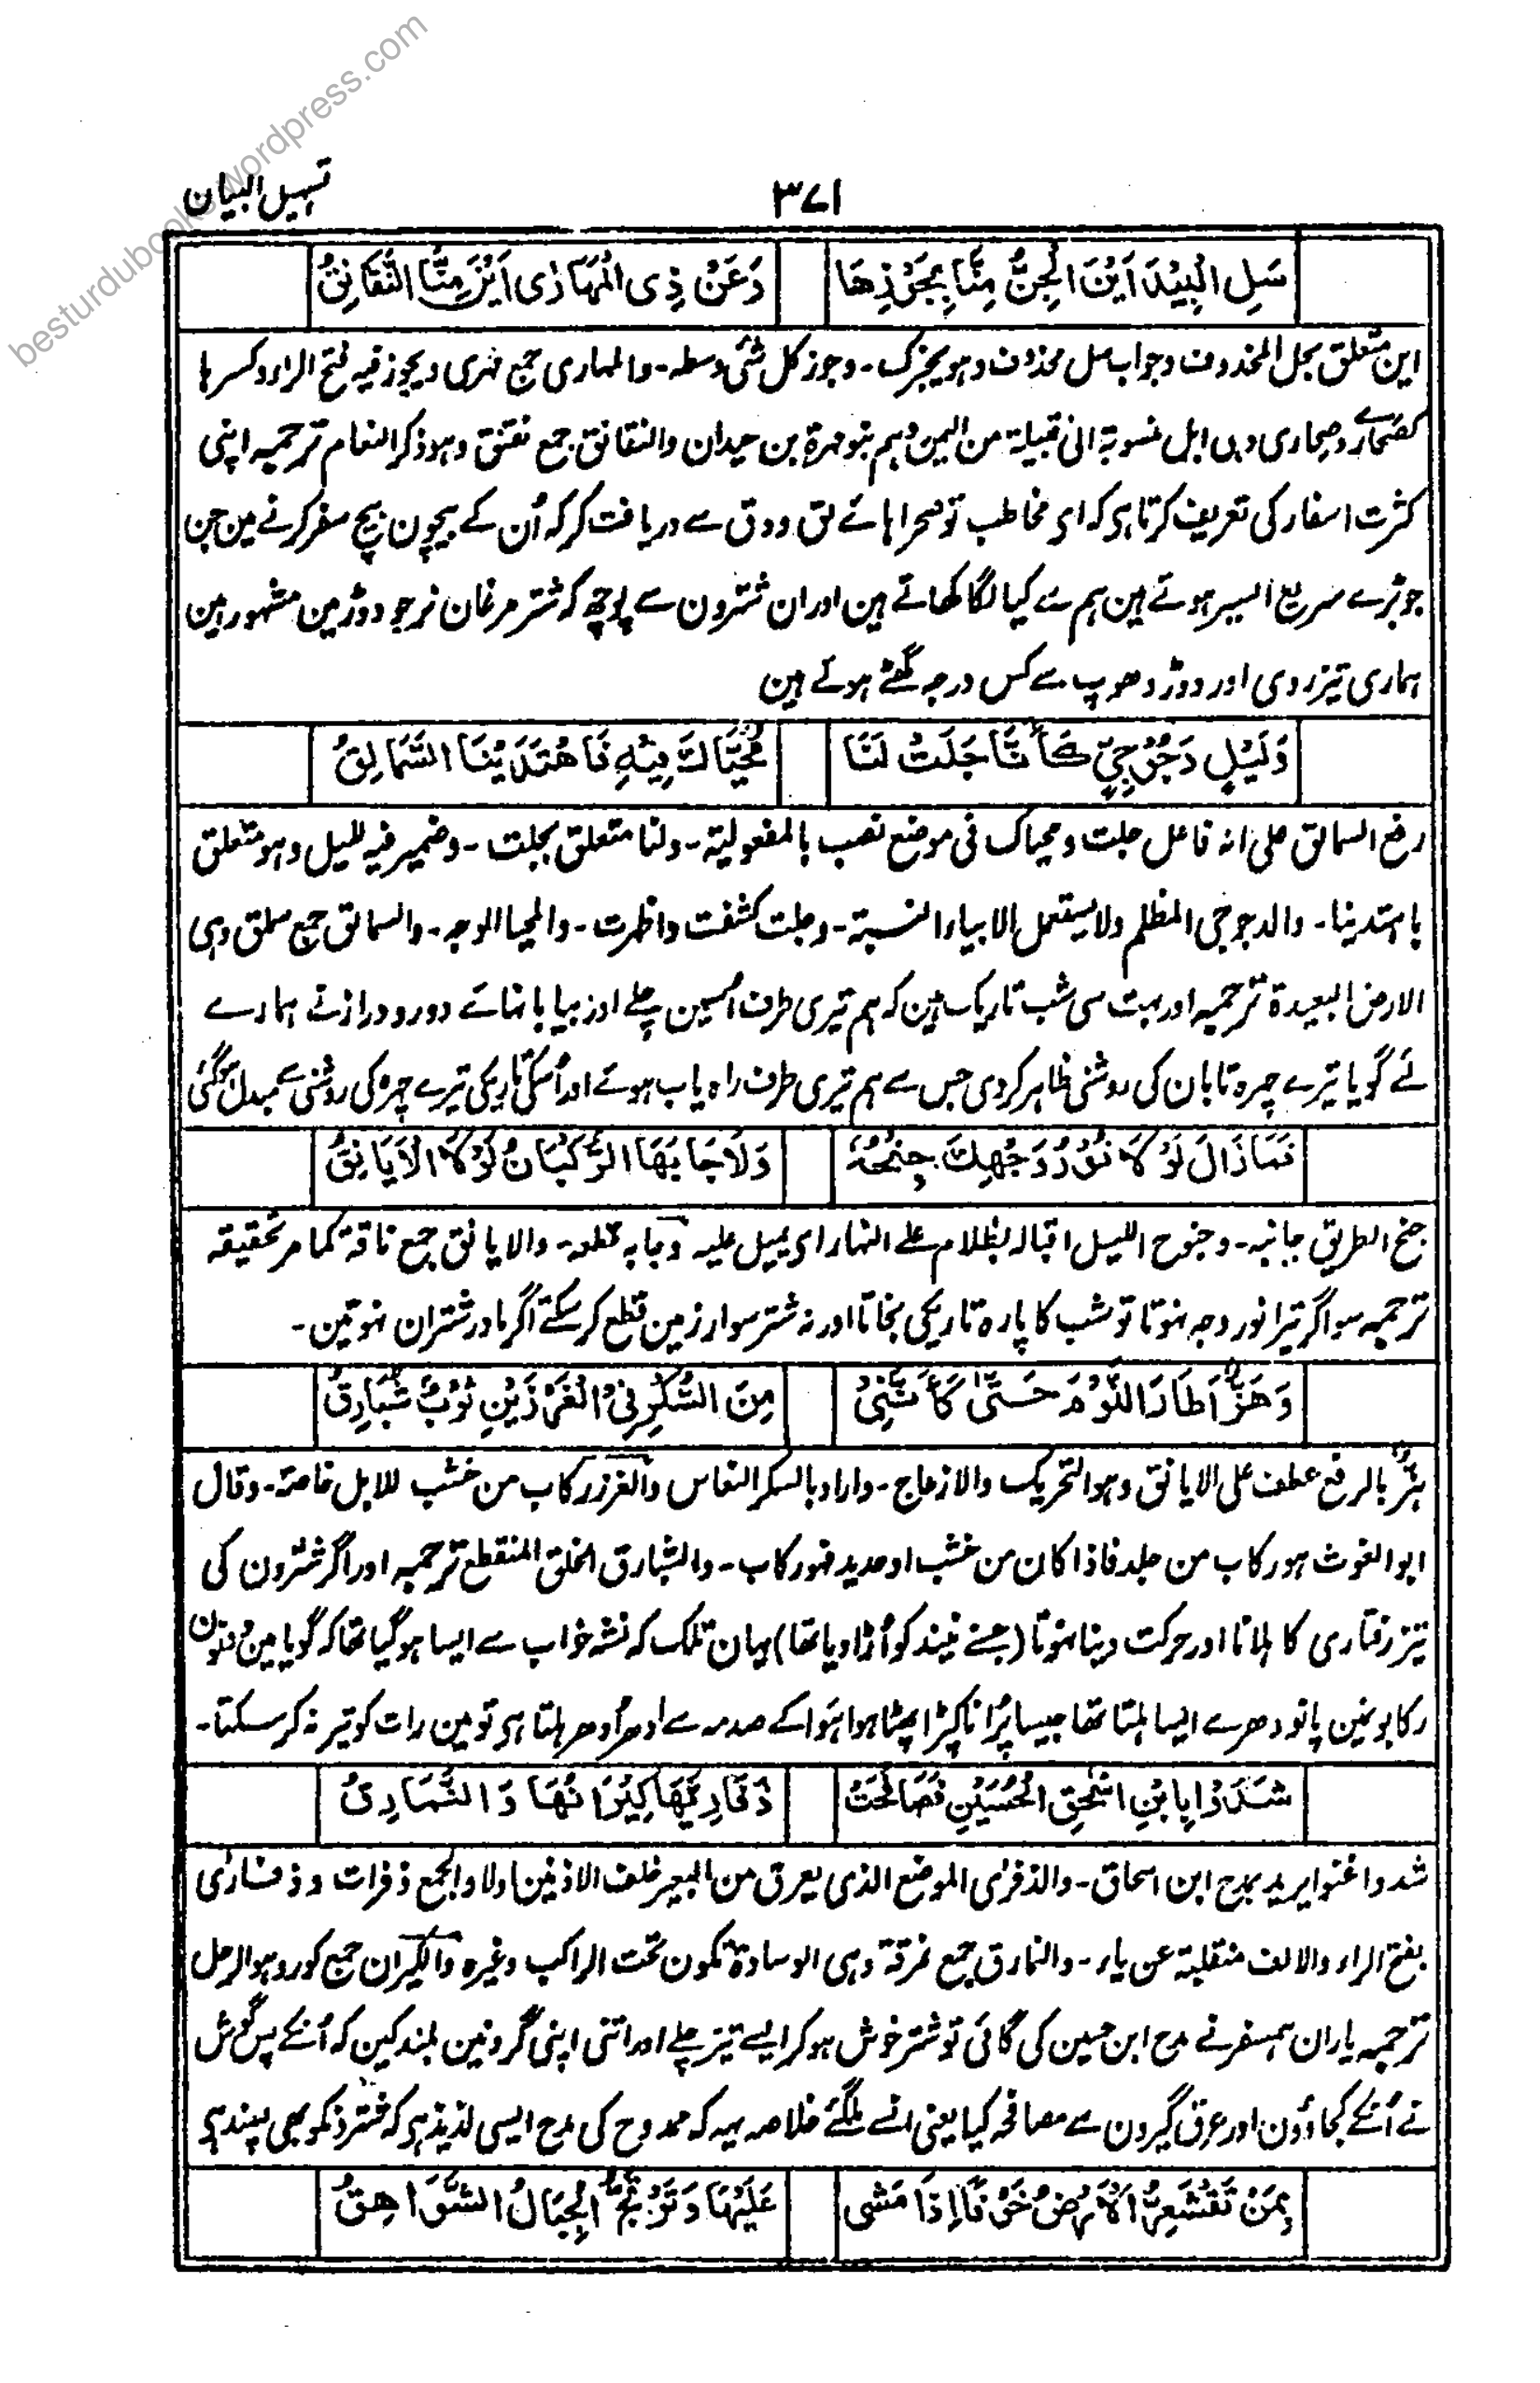 besturdubooks.wordpress.com
تسہیل البیان
۳۷۱
سَلِ الْبِيْدَ اَيْنَ الْجِنُّ مِنَّا بِجَوْزِهَا وَعَنْ ذِی الْمَهَارٰى اَيْنَ مِنَّا النَّقَانِقُ
این متعلق بجل المحذوف وجواب سل محذوف وہو یخبرک ۔ وجوز کل شئ وسطہ ۔ والمہاری جمع مہری ویجوز فیہ فتح الراء وکسرہا
کصحارٰے وصحاری وہی ابل منسوبۃ الیٰ قبیلۃ من الیمن وہم بنو مہرۃ بن حیدان والنقانق جمع نقنق وہو ذکر النعام ترجمہ اپنی
کثرت اسفار کی تعریف کرتا ہی کہ ای مخاطب تو صحراہائے لق ودق سے دریافت کر کہ اُن کے بیچون بیچ سفر کرنے مین جن
جو بڑے سریع السیر ہوتے ہین ہم سے کیا لگا کھاتے ہین اور ان شترون سے پوچھ کہ شتر مرغان نر جو دوڑ مین مشہور ہین
ہماری تیزروی اور دوڑ دھوپ سے کس درجہ گھٹے ہوئے ہین
وَلَيْلٍ دَجُوْجِيٍّ كَاَنَّا جَلَتْ لَنَا مُحَيَّاكَ فِيْهِ فَاهْتَدَيْنَا السَّمَالِقُ
رفع السمالق علی انہ فاعل جلت ومحیاک فی موضع نصب بالمفعولیۃ ۔ ولنا متعلق بجلت ۔ وضمیر فیہ للیل وہو متعلق
باہتدینا ۔ والدجوجی المظلم ولا یستعمل الا بیاء النسبۃ ۔ وجلت کشفت واظہرت ۔ والمحیا الوجہ ۔ والسمالق جمع سملق وہی
الارض البعیدۃ ترجمہ اور بہت سی شب تاریک ہین کہ ہم تیری طرف اُسمین چلے اور بیابانہائے دور ودراز نے ہمارے
لئے گویا تیرے چہرہ تابان کی روشنی ظاہر کردی جس سے ہم تیری طرف راہ یاب ہوئے اور اُسکی تاریکی تیرے چہرہ کی روشنی سے مبدل ہوگئی
فَمَا زَالَ لَوْ لَا نُوْرُ وَجْهِكَ جِنْحُهٗ وَلَا جَابَهَا الرُّكْبَانُ لَوْ لَا الْاَيَانِقُ
جنح الطریق جانبہ ۔ وجنوح اللیل اقبالہ بظلام علے النہار ای یمیل علیہ وجابہ قطعہ ۔ والایانق جمع ناقۃ کما مر تحقیقہ
ترجمہ سو اگر تیرا نور وجہ نہوتا تو شب کا پارہ تاریکی نجاتا اور نہ شتر سوار زمین قطع کرسکتے اگر مادر شتران نہوتین ۔
وَهَزٌّ اَطَارَ النَّوْمَ حَتّٰى كَاَنَّنِيْ مِنَ السُّكْرِ فِي الْغَرْزَيْنِ ثَوْبٌ شُبَارِقُ
ہزٌّ بالرفع عطف علی الایانق وہو التحریک والازعاج ۔ واراد بالسکر النعاس والغرز رکاب من خشب للابل خاصۃ ۔ وقال
ابو الغوث ہو رکاب من جلد فاذا کان من خشب او حدید فہو رکاب ۔ والشبارق الخلق المنقطع ترجمہ اور اگر شترون کی
تیز رفتاری کا ہلانا اور حرکت دینا نہوتا (جسنے نیند کو اُڑا دیا تھا) یہان تلک کہ نشہ خواب سے ایسا ہوگیا تھا کہ گویا مین دونون
رکابونمین پانو دھرے ایسا ہلتا تھا جیسا پُرانا کپڑا پھٹا ہوا ہَوا کے صدمہ سے اِدھر اُدھر ہلتا ہی تو مین رات کو تیر نہ کرسکتا ۔
شَدَوْا بِابْنِ اِسْحٰقَ الْحُسَيْنِ فَصَافَحَتْ ذَفَارِيْهَا كِيْرَانُهَا وَ النَّمَارِقُ
شدوا غنوا یرید بمدح ابن اسحاق ۔ والذفریٰ الموضع الذی یعرق من البعیر خلف الاذنین اولا والجمع ذفرات و ذفاریٰ
بفتح الراء والالف منقلبۃ عن یاء ۔ والنمارق جمع نمرقۃ وہی الوسادۃ تکون تحت الراکب وغیرہ والکیران جمع کور وہو الرحل
ترجمہ یاران ہمسفر نے مدح ابن حسین کی گائی تو شتر خوش ہو کر ایسے تیز چلے اور اتنی اپنی گردنین بلند کین کہ اُنکے پس گوش
نے اُنکے کجاؤون اور عرق گیرون سے مصافحہ کیا یعنی انسے ملگئے خلاصہ یہہ کہ ممدوح کی مدح ایسی لذیذ ہی کہ شترونکو بھی پسند ہی
بِمَنْ تَقْشَعِرُّ الْاَرْضُ خَوْفًا اِذَا مَشٰى عَلَيْهَا وَتَرْتَجُّ الْجِبَالُ الشَّوَاهِقُ